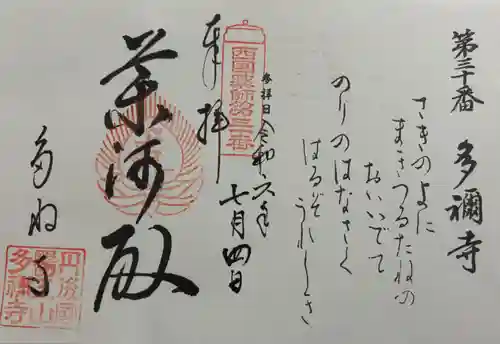 第三十番 多禰寺
さきのよに
まきつるたねの
おいいでて
のりのはなさく
はるぞうれしき
参拝日 令和六年
七月四日
西国薬師第三十番
奉拝
薬師殿
多祢寺
丹後國
多禰寺